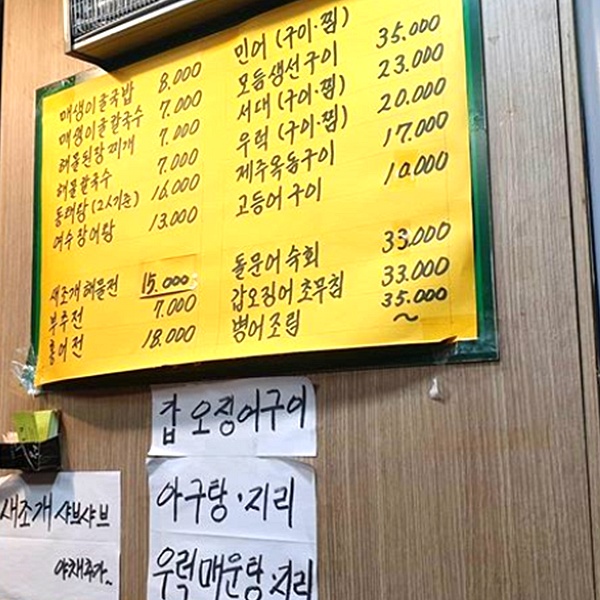 매생이굴국밥 8.000
매생이굴칼국수 7.000
해물된장찌개 7.000
해물칼국수 7.000
동태탕 (2人기준) 16.000
여수장어탕 13.000
새조개해물전 15.000
부추전 7.000
홍어전 18.000
민어 (구이·찜)
모듬생선구이 35.000
서대 (구이·찜) 23.000
우럭 (구이·찜) 20.000
제주옥돔구이 17.000
고등어구이 10.000
돌문어숙회 33.000
갑오징어초무침 33.000
병어조림 35.000~
갑오징어구이
아구탕·지리
우럭매운탕·지리
새조개 샤브샤브
야채추가..